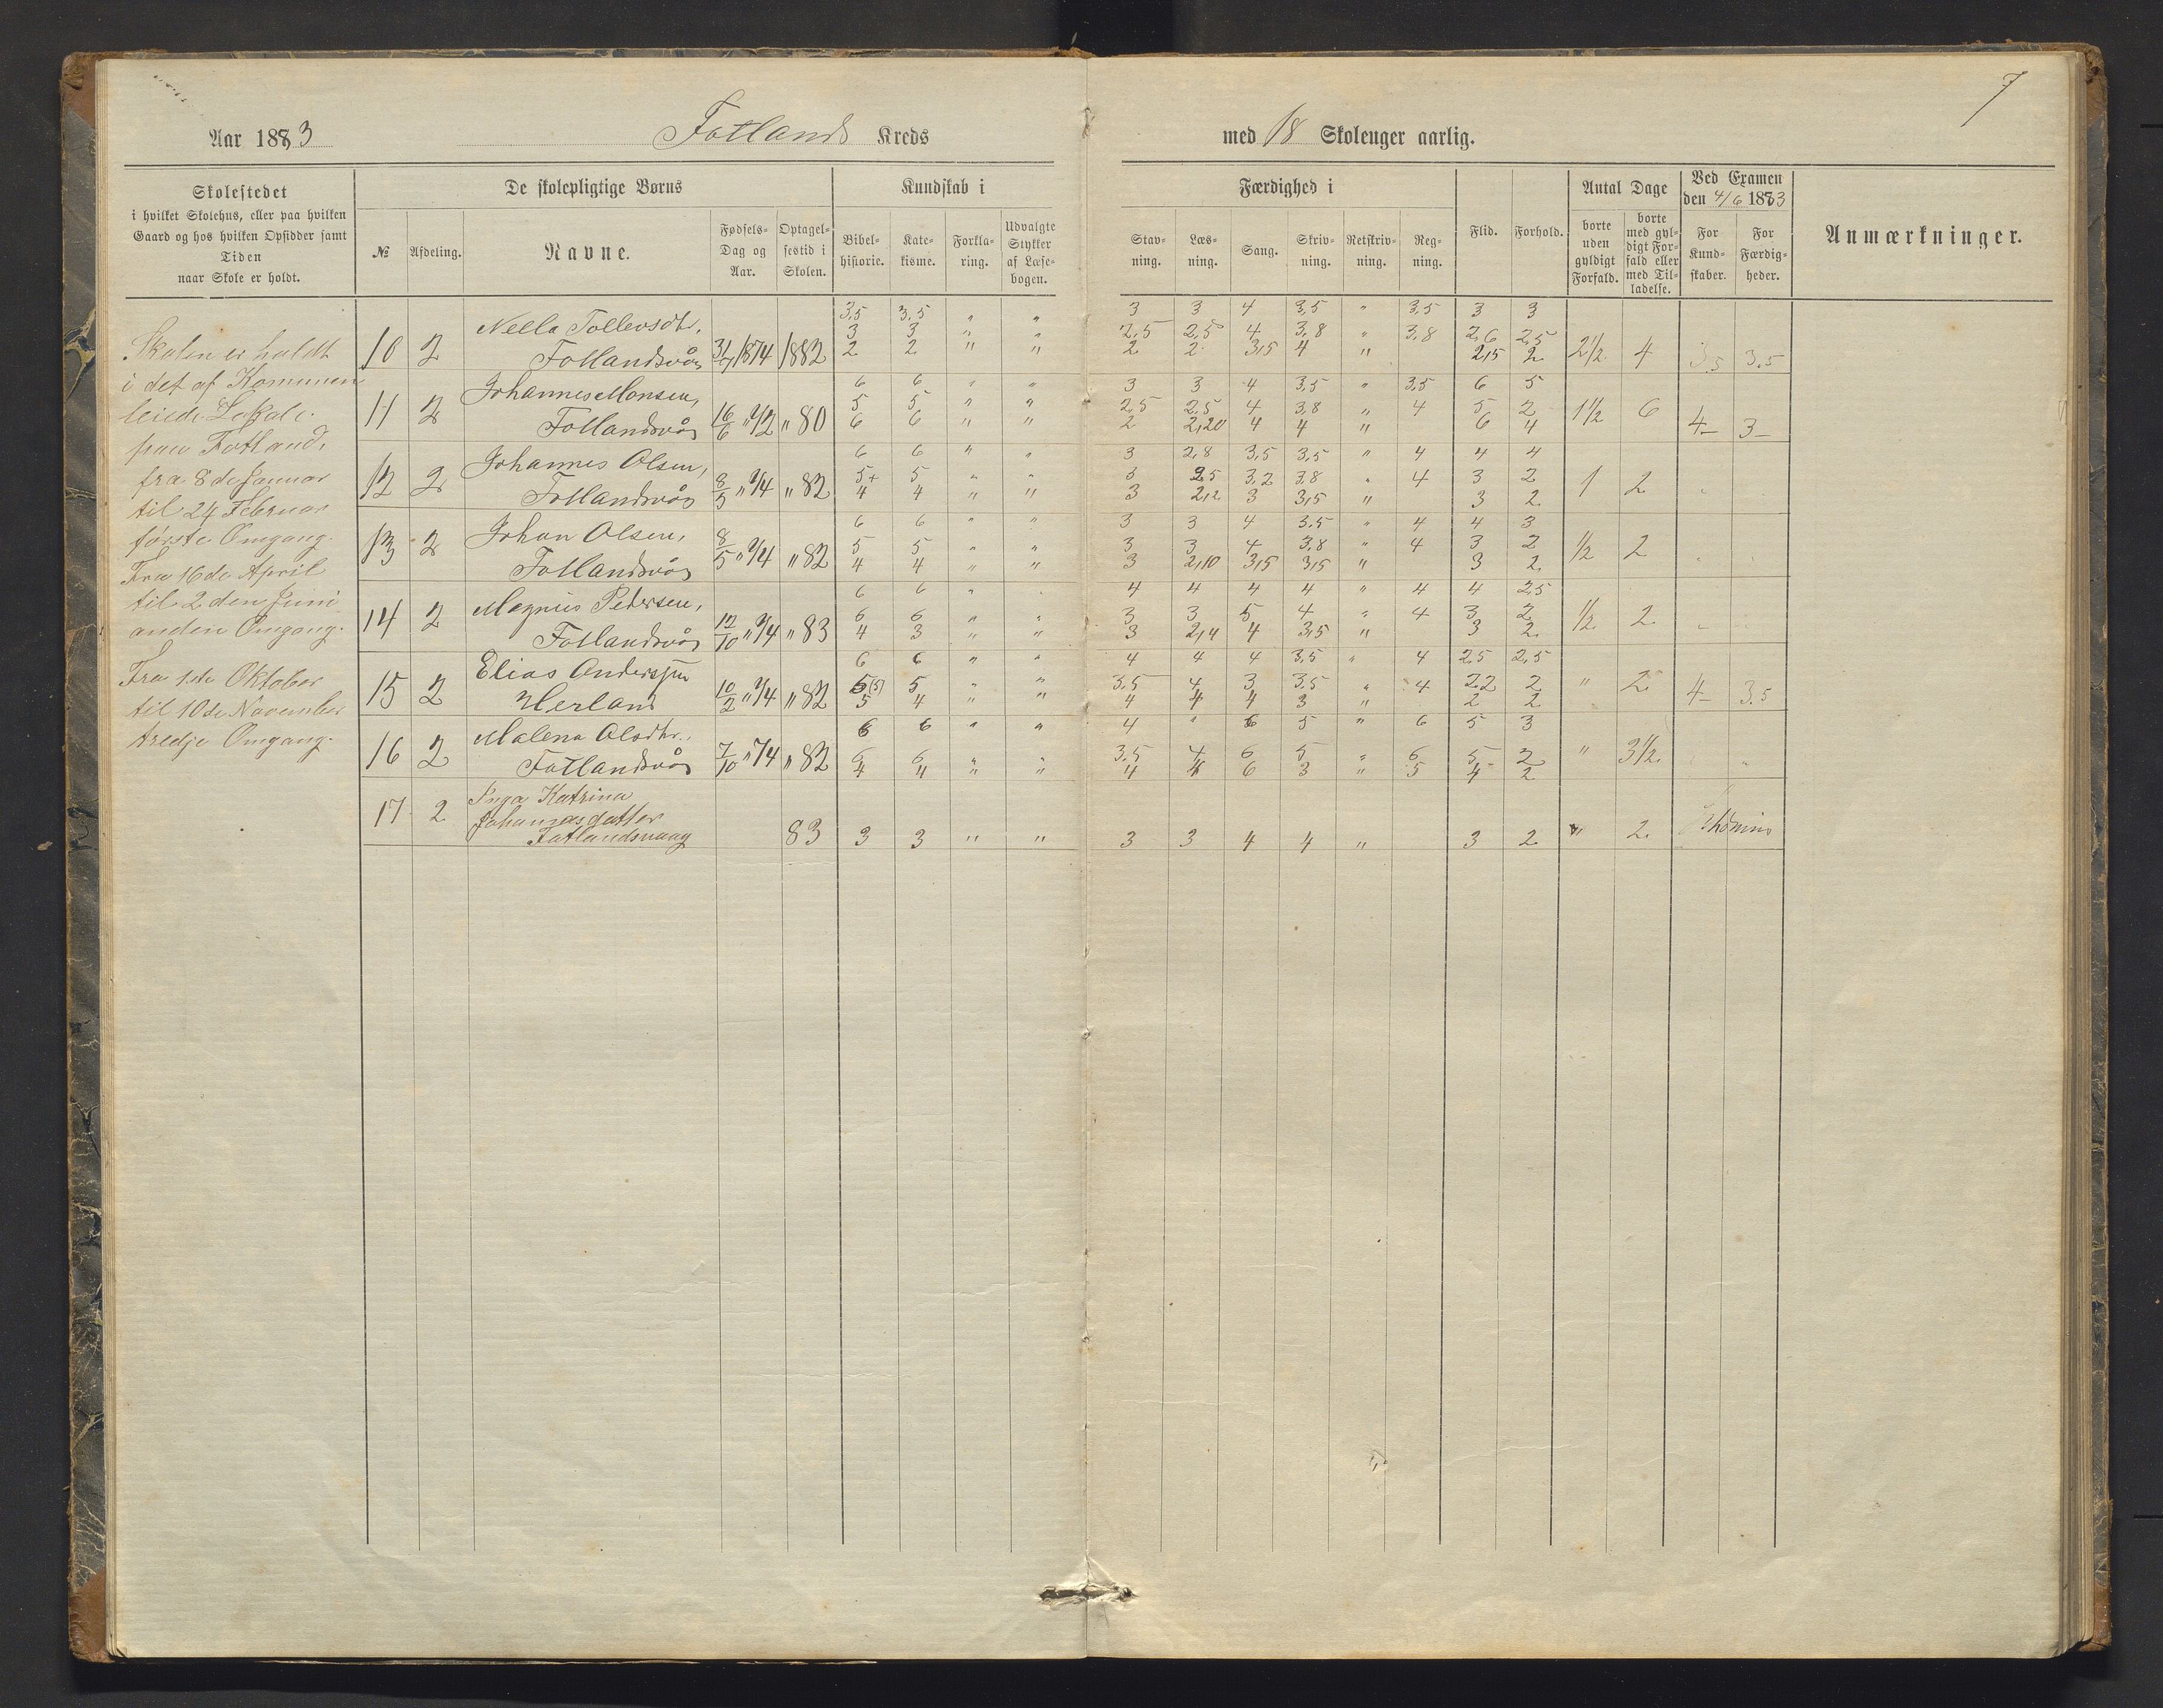 7
Aar 1883 Fotlands Kreds med 18 Skolenger aarlig.
Skolestedet
i hvilket Skolehus, eller paa hvilken
Gaard og hos hvilken Opsidder samt
Tiden
naar Skole er holdt.
De skolepligtige Børns
№ Afdeling. Navne. Fødsels-Dag og Aar. Optagel-sestid i Skolen.
Kundskab i
Bibel-historie. Kate-kisme. Forkla-ring. Udvalgte Stykker af Læse-bogen.
Færdighed i
Stav-ning. Læs-ning. Sang. Skriv-ning. Retskriv-ning. Reg-ning.
Flid. Forhold.
Antal Dage
borte uden gyldigt Forfald. borte med gyl-digt For-fald eller med Til-ladelse.
Ved Examen
den 4/6 1883
For Kund-skaber. For Færdig-heder.
Anmærkninger.
Skolen er holdt
i det af Komunen
leiede Lokale
paa Fotland,
fra 8de Januar
til 24 Februar
første Omgang.
Fra 16de April
til 2den Juni
anden Omgang.
Fra 1ste Oktober
til 10de November
tredje Omgang.
3,5 3,5 " " 3 3 4 3,5 " 3,5 3 3
Nella Tollevsdtr. 3 3 " " 2,5 2,5 4 3,8 " 3,8 2,6 2,5
10 2 Fotlandsvåg 1874 1882 2 2 " " 2 2 3,5 4 " 2,5 2 2 1/2 4 3,5 3,5
Johannes Monsen, 6 6 " " 3 3 4 3,5 " 3,5 6 5
5 5 " " 2,5 2,5 4 3,8 " 4 5 2
11 2 Fotlandsvåg 16/6 " 80 6 6 " " 2 2,20 4 4 " 6 4 1 1/2 6 4- 3-
Johannes Olsen, 6 6 " " 3 2,8 3,5 3,5 " 4 4 4
5+ 5 " " 3 2,5 3,2 3,8 " 4 3 2
12 2 Fotlandsvåg 8/5 " 7/4 " 82 4 4 " " 3 2,2 3 3,5 " 3 2 1 2
Johan Olsen, 6 6 " " 3 3 4 3,5 " 4 4 3
5 5 " " 3 3 4 3,8 " 4 3 2
13 2 Fotlandsvåg 8/5 " 7/4 " 82 4 4 " " 3 2,10 3,5 3,5 " 3 2 1/2 2
Magnus Pedersen, 6 6 " 4 4 4 4 " 4 4 2,5
6 6 " " 3 3 5 4 " 4 3 2
14 2 Fotlandsvåg 12/10 " 7/4 " 83 4 3 " " 3 2,4 4 3,5 " 3 2 1/2 2
Elias Anderssen 6 6 " " 4 4 4 3,5 " 4 2,5 2,5
5 (5) 5 " " 3,5 4 3 3,5 " 4 2,2 2
15 2 Herland 10/2 " 7/4 " 82 5 4 " " 4 4 4 3 " 2 2 " 2 4- 3,5
Malena Olsdtr., 6 6 " " 4 " 6 5 " 6 5 3
6 6 " " 3,5 4 6 5 " 6 5 2
16 2 Fotlandsvåg 7/10 " 74 " 82 4 4 " " 4 4 6 3 " 5 4 2 " 3 1/2
Inga Katrina
Johannesdatter
17 2 Fotlandsvaag 83 3 3 " " 3 3 4 4 " 3 2 " 2